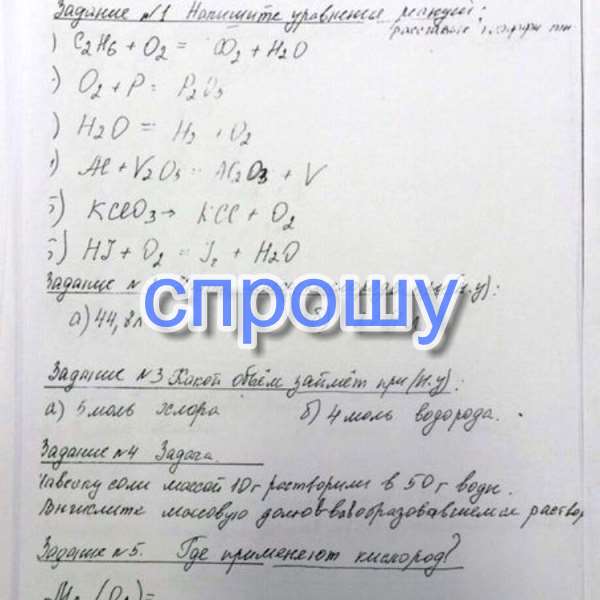 Задание №1 Напишите уравнения реакций:
1) C2H6 + O2 = CO2 + H2O
O2 + P = P2O5
) H2O = H2 + O2
) Al + V2O5 = Al2O3 + V
5) KClO3 → KCl + O2
HJ + O2 = J2 + H2O
Задание №
спрошу
а) 44,8л
Задание №3 Какой объём займёт при (н.у):
а) 5 моль хлора б) 4 моль водорода.
Задание №4 Задача.
Навеску соли массой 10 г растворили в 50 г воды.
Вычислите массовую долю в образовавшемся раствор
Задание №5. Где применяют кислород?
Mr (O2) =